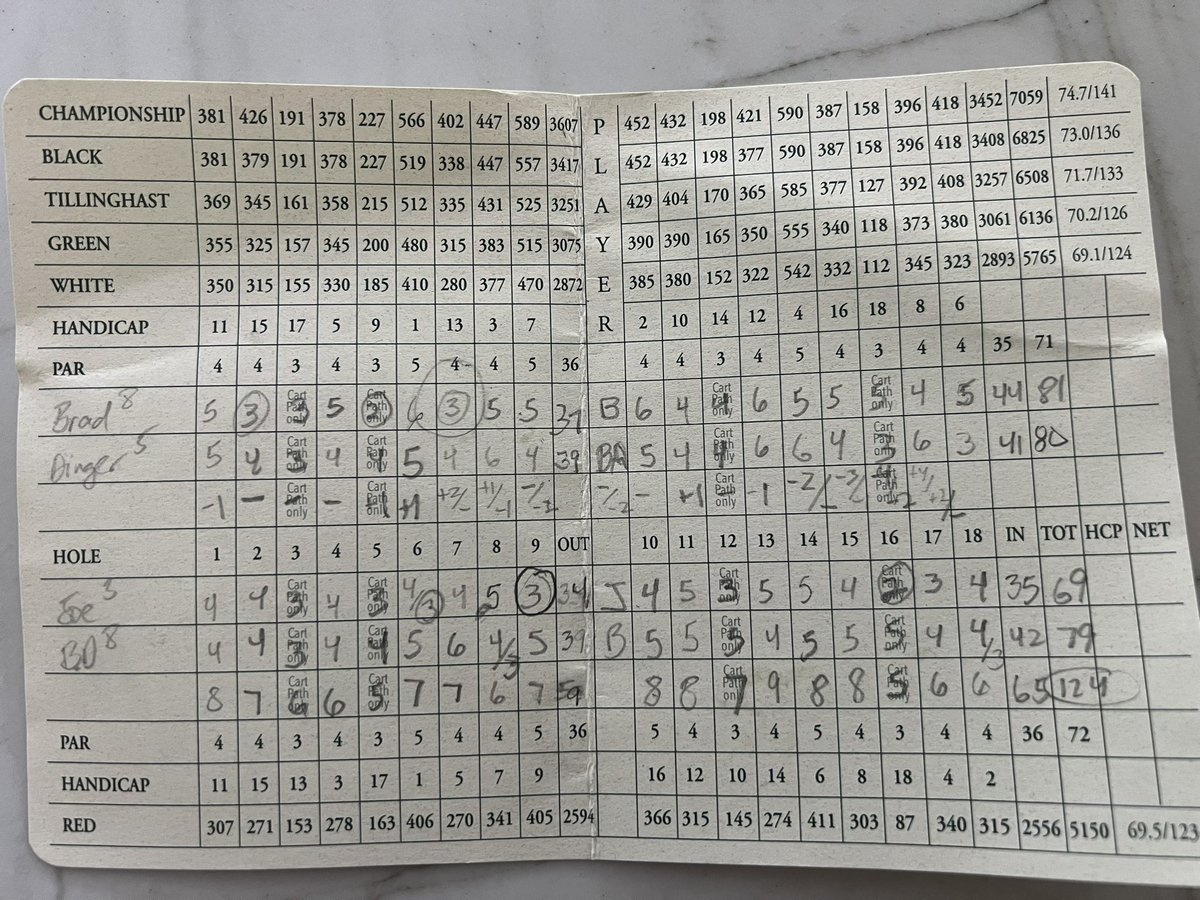 CHAMPIONSHIP 381 426 191 378 227 566 402 447 589 3607 P 452 432 198 421 590 387 158 396 418 3452 7059 74.7/141
BLACK 381 379 191 378 227 519 338 447 557 3417 L 452 432 198 377 590 387 158 396 418 3408 6825 73.0/136
TILLINGHAST 369 345 161 358 215 512 335 431 525 3251 A 429 404 170 365 585 377 127 392 408 3257 6508 71.7/133
GREEN 355 325 157 345 200 480 315 383 515 3075 Y 390 390 165 350 555 340 118 373 380 3061 6136 70.2/126
WHITE 350 315 155 330 185 410 280 377 470 2872 E 385 380 152 322 542 332 112 345 323 2893 5765 69.1/124
HANDICAP 11 15 17 5 9 1 13 3 7 R 2 10 14 12 4 16 18 8 6
PAR 4 4 3 4 3 5 4 4 5 36 4 4 3 4 5 4 3 4 4 35 71
Brad 8 5 3 Cart Path only 5 Cart Path only 6 3 5 5 37 B 6 4 Cart Path only 6 5 5 Cart Path only 4 5 44 81
Dinger 5 5 4 Cart Path only 3 4 Cart Path only 4 5 4 6 4 39 BA 5 4 Cart Path only 4 6 6 4 Cart Path only 3 6 3 41 80
-1 - Cart Path only - - Cart Path only +1 +2/- +1/-1 -/-2 -/-2 +1 Cart Path only -1 -2/- -3/- Cart Path only
HOLE 1 2 3 4 5 6 7 8 9 OUT 10 11 12 13 14 15 16 17 18 IN TOT HCP NET
Joe 3 4 4 Cart Path only 3 4 Cart Path only 3 4/3 4 5 3 34 J 4 5 Cart Path only 3 5 5 4 Cart Path only 3 4 35 69
BD 8 4 4 Cart Path only 3 4 Cart Path only 4 5 6 4/3 5 39 B 5 5 Cart Path only 5 4 5 5 Cart Path only 5 4 4/3 42 79
8 7 Cart Path only 6 6 Cart Path only 5 7 7 6 7 59 8 8 Cart Path only 7 9 8 8 Cart Path only 5 6 6 65 124
PAR 4 4 3 4 3 5 4 4 5 36 5 4 3 4 5 4 3 4 4 36 72
HANDICAP 11 15 13 3 17 1 5 7 9 16 12 10 14 6 8 18 4 2
RED 307 271 153 278 163 406 270 341 405 2594 366 315 145 274 411 303 87 340 315 2556 5150 69.5/123